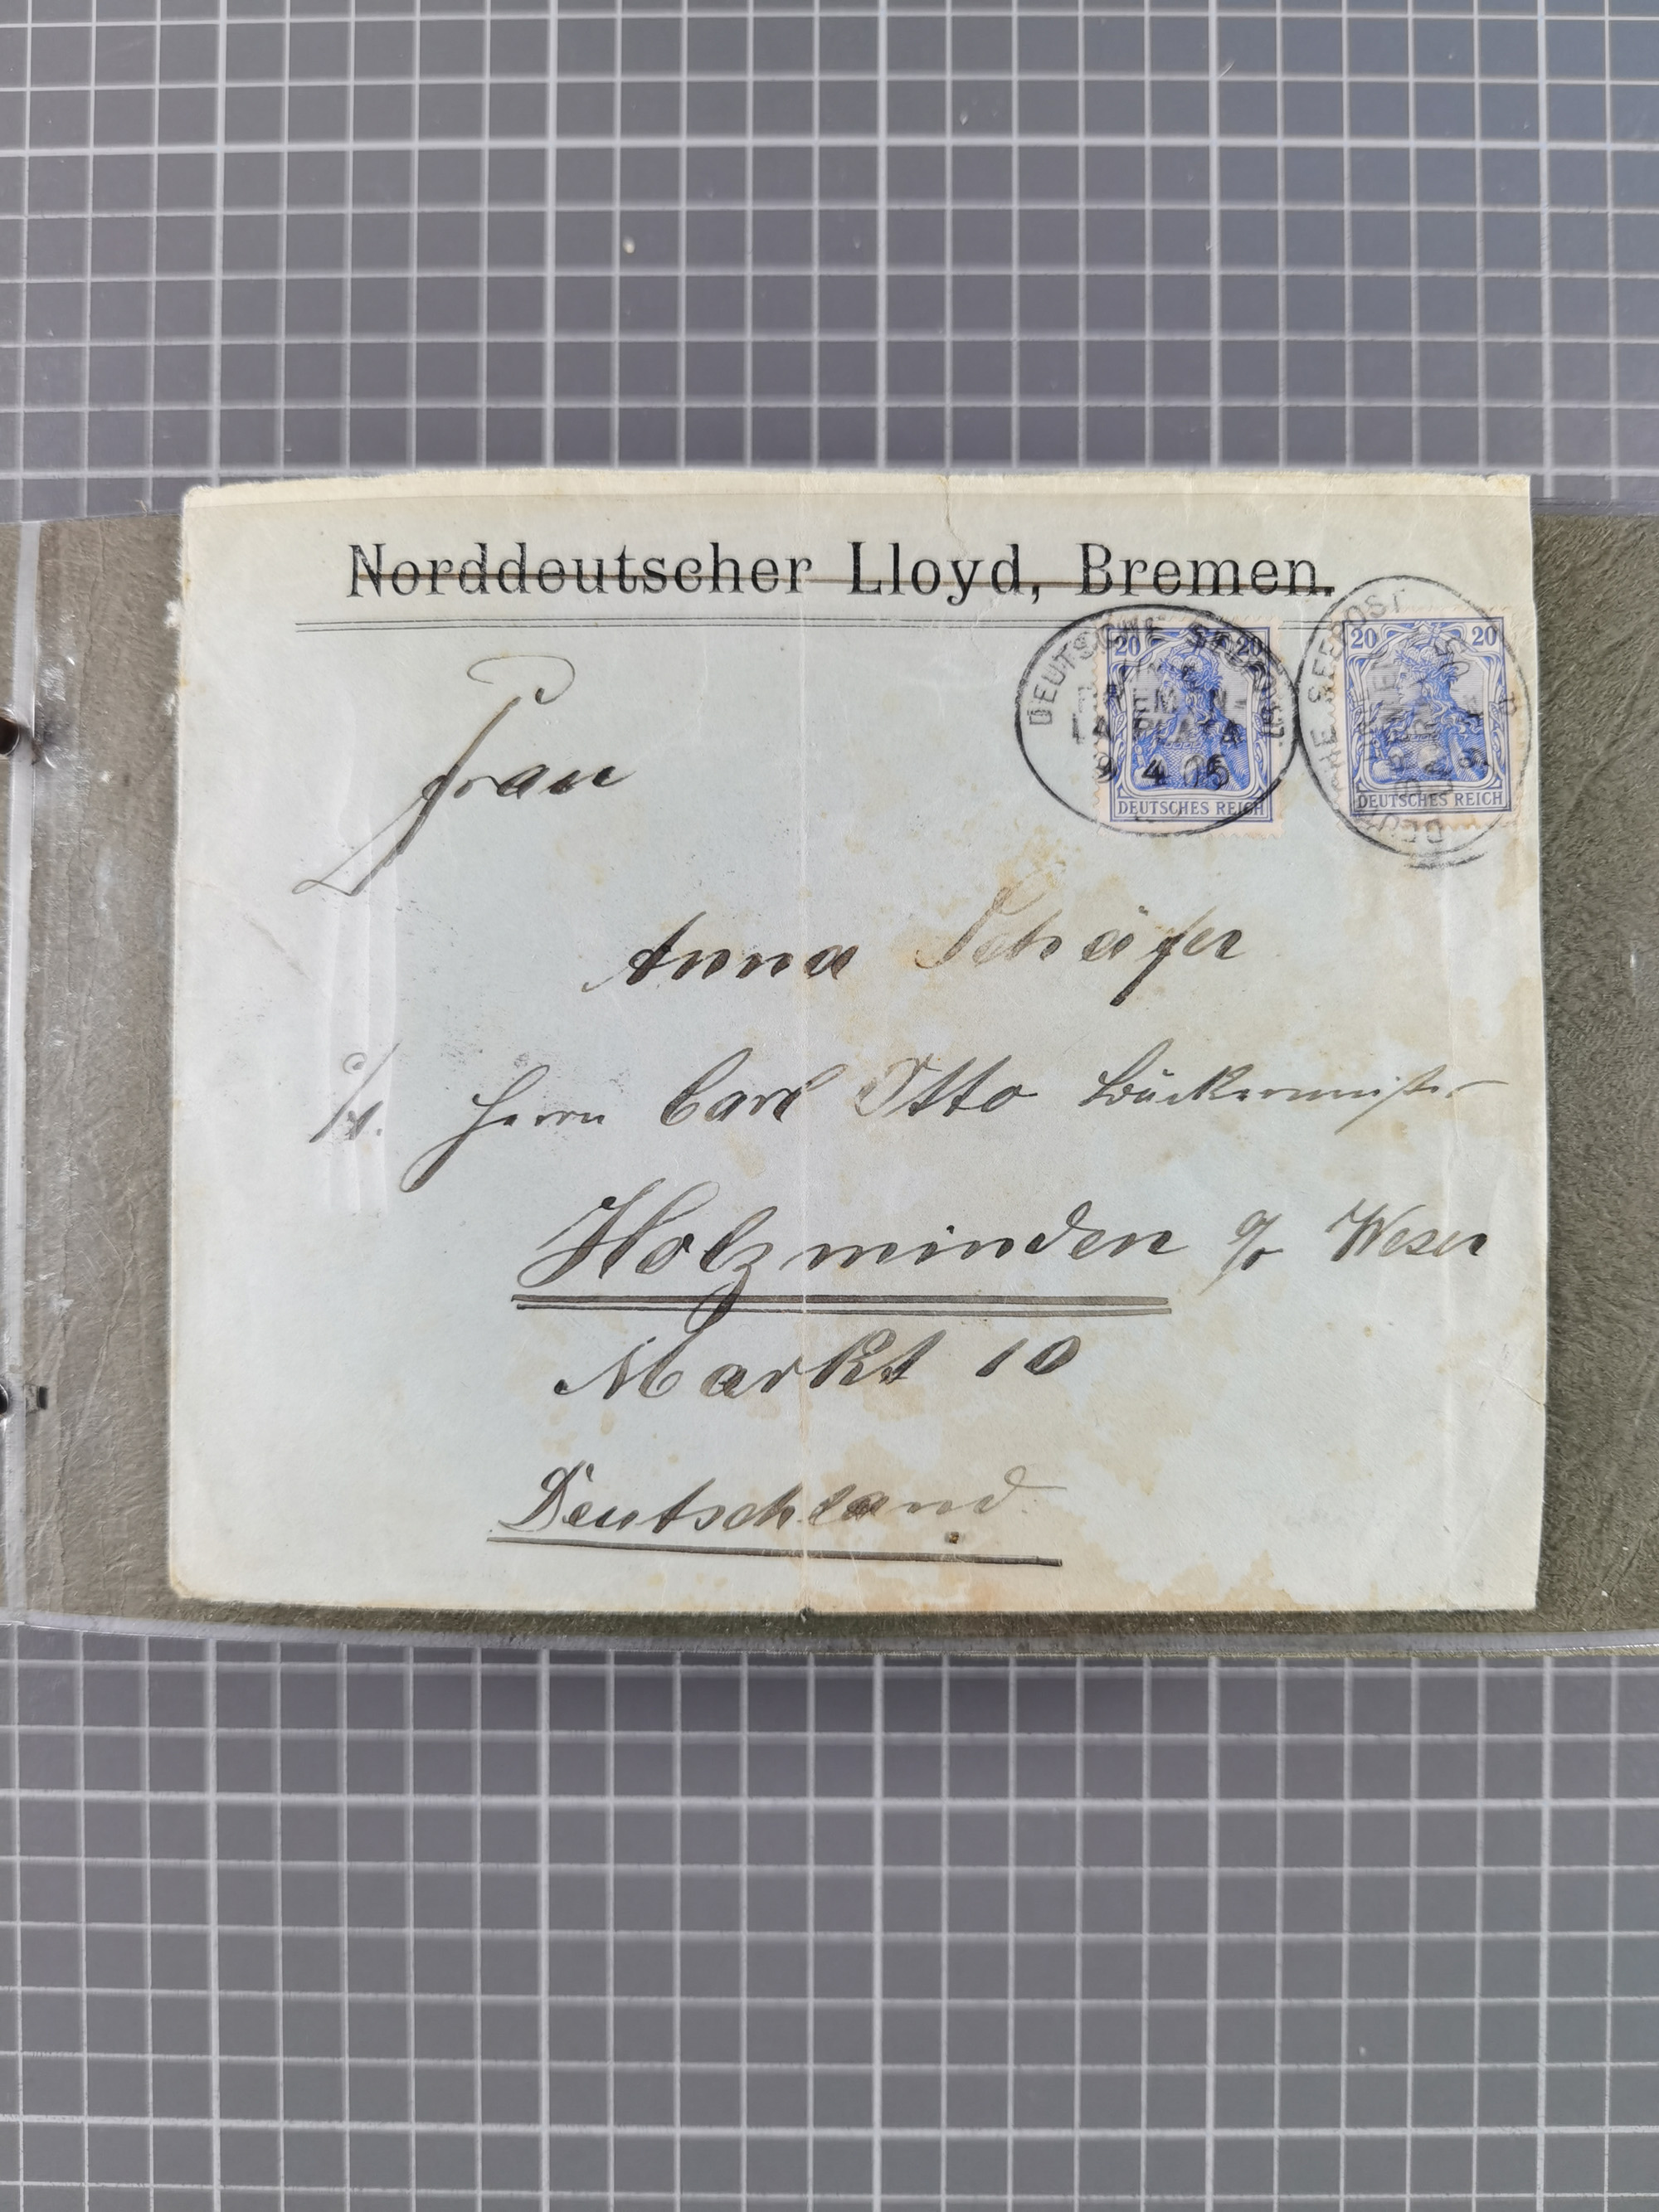 Norddeutscher Lloyd, Bremen.
DEUTSCHE SEEPOST
BREMEN-
LA PLATA
9 4 05
20 20
DEUTSCHES REICH
20 20
DEUTSCHES REICH
DEUTSCHE SEEPOST
Frau
Anna Schäfer
Herrn Carl Otto Bäckermeister
Holzminden a/ Weser
Markt 10
Deutschland